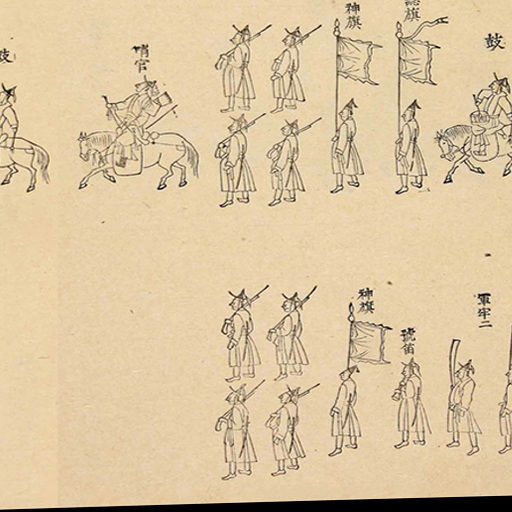 鼓
旗
神旗
哨官
軍牢二
號笛
神旗